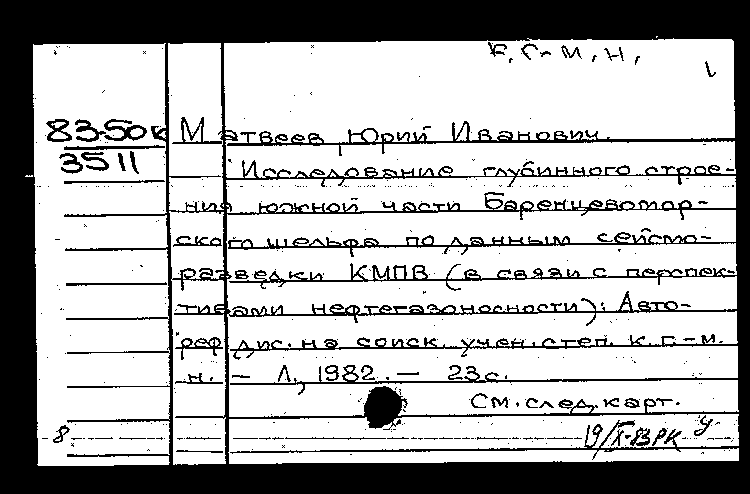 к.г-м.н.
83-50к Матвеев Юрий Иванович.
3511 Исследование глубинного строе-
ния южной части Баренцевомор-
ского шельфа по данным сейсмо-
разведки КМПВ (в связи с перспек-
тивами нефтегазоносности): Авто-
реф. дис. на соиск. учен. степ. к. г.-м.
н. - Л., 1982. - 23с.
См. след. карт.
8 19/X-83РК